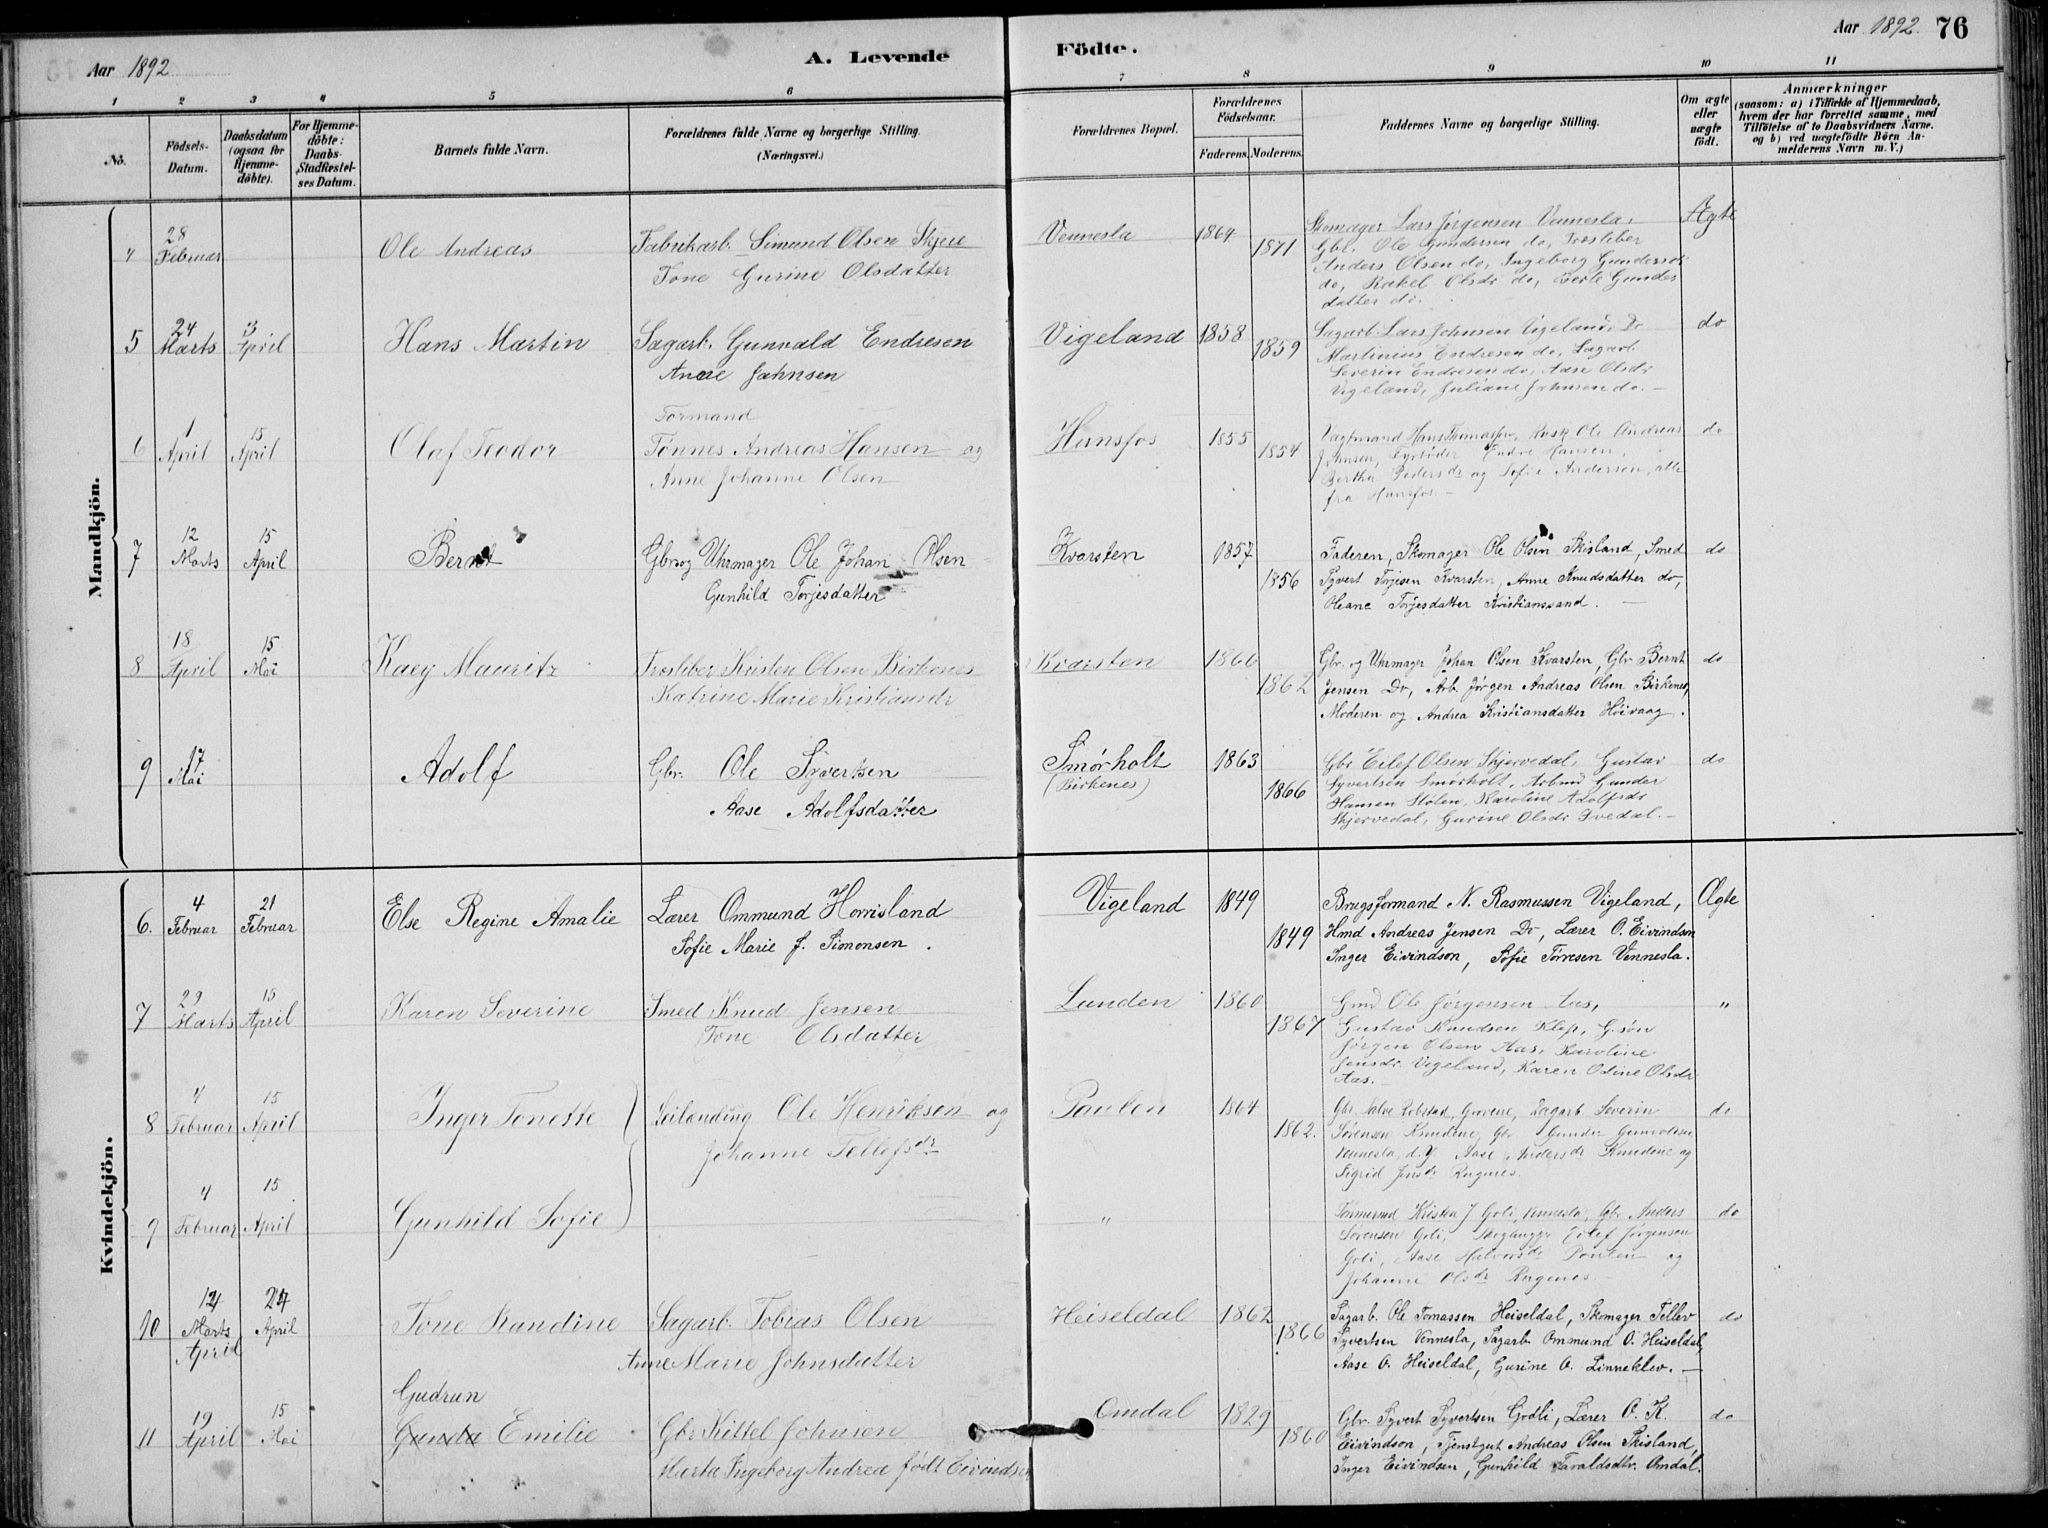 Aar 1892
A. Levende Födte.
Aar 1892. 76
1 2 3 4 5 6 7 8 9 10 11
No.
Födsels-Datum.
Daabsdatum (ogsaa for Hjemme-döbte).
For Hjemme-döbte: Daabs-Stadfæstel-ses Datum.
Barnets fulde Navn.
Forældrenes fulde Navne og borgerlige Stilling.
(Næringsvei.)
Forældrenes Bopæl.
Forældrenes Födselsaar.
Faderens. Moderens.
Faddernes Navne og borgerlige Stilling.
Om ægte eller uægte födt.
Anmærkninger
(saasom: a) i Tilfælde af Hjemmedaab, hvem der har forrettet samme, med Tilföielse af to Daabsvidners Navne. og b) ved uægtefödte Börn Anmelderens Navn m. V.)
Mandkjön.
4 28 Februar Ole Andreas Fabrikarb. Simund Olsen Skjeie
Tone Gurine Olsdatter
Vennesla 1864 1871
Skomager Lars Jørgensen Vennesla,
Gbr. Ole Gundersen do, Træsleber
Anders Olsen do, Ingeborg Gundersdr
do, Rakel Olsdr do, Gunders
datter do.
Ægte
5 24 Marts 3 April Hans Martin Sagarb. Gunvald Endresen
Anne Johnsen
Vigeland 1858 1859
Sagarb. Lars Johnsen Vigeland, Do
Martinius Endresen do, Sagarb.
Severin Endresen do, Aase Olsdr
Vigeland, Juliane Johnsen do. —
do
6 1 April 15 April Olaf Teodor Formand
Tønnes Andreas Hansen og
Anne Johanne Olsen
Hunsfos 1855 1854
Vagtmand Hans Ole Andreas
Johnsen, Fyrbøder Endre Hansen,
Bertha Pedersdr og Sofie Andersen, alle
fra Hunsfos. —
do
7 12 Marts 15 April Bernt Gbr og Uhrmager Ole Johan Olsen
Gunhild Torjesdatter
Kvarsten 1857 1856
Faderen, Skomager Ole Olsen Skisland, Smed
Syvert Torjesen Kvarsten, Anne Knudsdatter do,
Oleane Torjesdatter Kristianssand. —
do
8 18 April 15 Mai Kaey Mauritz Træsleber Kristen Olsen Birkenes
Katrine Marie Kristiansdr
Kvarsten 1866 1862
Gbr. og Uhrmager Johan Olsen Kvarsten, Gbr Bernt
Jensen Do, Arb. Jørgen Andreas Olsen Birkenes,
Moderen og Andrea Kristiansdatter Höivaag.
do
9 17 Mai Adolf Gbr. Ole Syvertsen
Aase Adolfsdatter
Smørholt
(Birkenes)
1863 1866
Gbr Eilef Olsen Skjervedal, Gustav
Syvertsen Smørholt, Arbmd Gunder
Hansen Stølen, Karoline Adolfsdr
Skjervedal, Gurine Olsdr Tvedal. —
do
Kvindekjön.
6. 4 Februar 21 Februar Else Regine Amalie Lærer Ommund Horrisland
Sofie Marie J. Simonsen.
Vigeland 1849 1849
Brugsformand N. Rasmussen Vigeland,
Hmd Andreas Jensen Do, Lærer O. Eivindson
Inger Eivindson, Sofie Torresen Vennesla.
Ægte
7 29 Marts 15 April Karen Severine Smed Knud Jensen
Tone Olsdatter
Lunden 1860 1867
Gmd Ole Jørgensen Aas,
Gustav Knudsen Klep, G.søn
Jørgen Olsen Aas, Karoline
Jensdr. Vigeland, Karen Odine Olsdr
Aas. —
"
8 4 Februar 15 April Inger Tonette Ole Henriksen og
Johanne Tellefsdr
Paulen 1864 1862.
Gbr. Salve Robstad, Sagarb. Severin
Sørensen Knudene, Gbr Gunder Gunvaldsen
Vennesla, Aase Andersdr Knudene og
Sigrid Jensdr Rugenes.
do
9 4 Februar 15 April Gunhild Sofie
"
J. Goli, Vennesla, Gbr. Anders
Sørensen Goli, Eilef Jørgensen
Goli, Aase Halvorsdr Paulen og
Johanne Olsdr Rugenes. —
do
10 12 Marts April 24 April Tone Randine Sagarb. Tobias Olsen
Anne Marie Johnsdatter
Heiseldal 1862 1866
Sagarb. Ole Tomassen Heiseldal, Skomager Tellev
Syvertsen Vennesla, Sagarb. Ommund O. Heiseldal,
Aase O. Heiseldal, Gurine O. Linneklev. —
do
11 19 April 15 Mai Gudrun
Gunda Emilie Gbr. Kittel Johnsen
Marta Ingeborg Andrea født Eivindsen
Omdal 1829 1860
Gbr. Syvert Syvertsen Godli, Lærer O. K.
Eivindson, Tjenstgut Andreas Olsen Skisland,
Inger Eivindsen, Gunhild Taraldsdtr. Omdal.
do